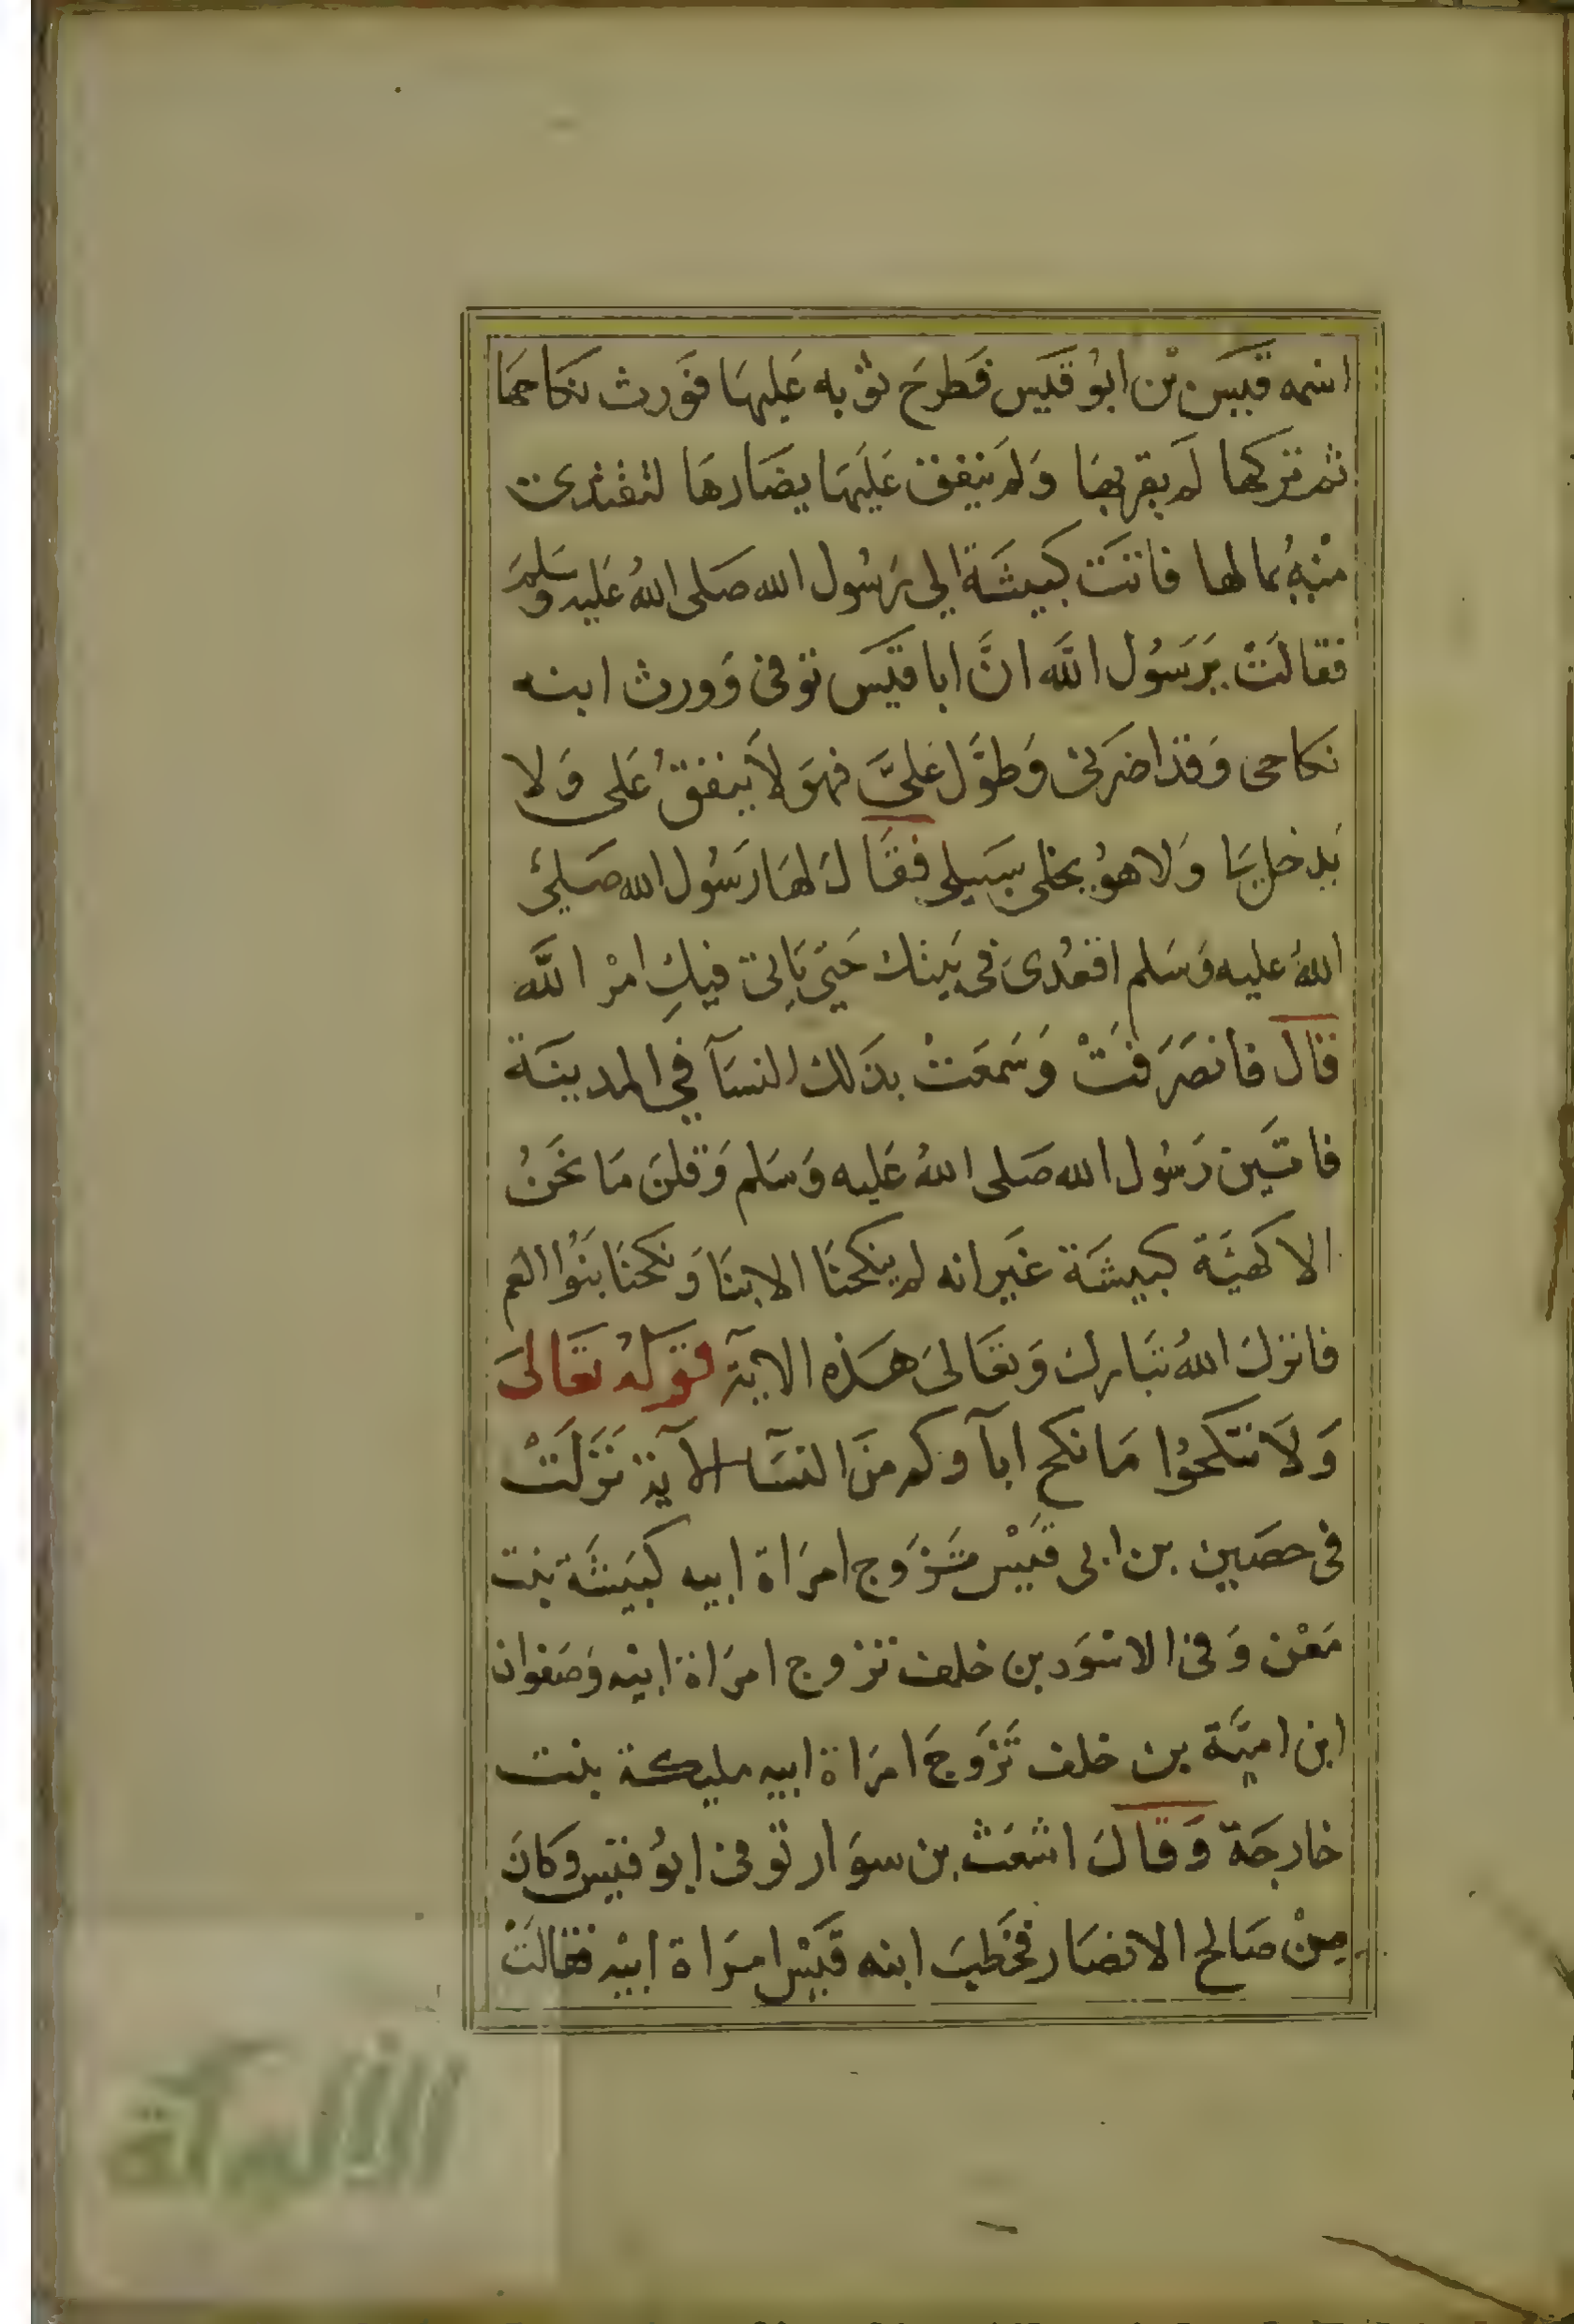 اسمه قيس بن ابو قيس فطرح ثوبه عليها فورث نكاحها
ثم تركها لم يقربها ولم ينفق عليها يضارها لتفتدى
منه بمالها فاتت كبيشة الى رسول الله صلى الله عليه وسلم
فقالت يرسول الله انّ ابا قيس توفى وورث ابنه
نكاحى وقد اضرنى وطوّل علىّ فهو لا ينفق على ولا
يدخل بيا ولا هو يخلى سبيلى فقال لها رسول الله صلى
الله عليه وسلم اقعدى فى بيتك حتى ياتى فيكِ امر الله
قال فانصرفت وسمعت بذلك النسآ في المدينة
فاتين رسول الله صلى الله عليه وسلم وقلن ما نحن
الا كهيئة كبيشة غير انه لم ينكحنا الابنا ونكحنا بنوا العم
فانزل الله تبارك وتعالى هذه الاية قوله تعالى
ولا تنكحوا ما نكح ابآوكم من النسآ الآية نزلت
فى حصين بن ابى قيس تزوج امراة ابيه كبيشة بنت
معن وفى الاسود بن خلف تزوج امراة ابيه وصفوان
ابن اميّة بن خلف تزوج امراة ابيه مليكة بنت
خارجة وقال اشعث بن سوار توفى ابو قيس وكان
من صالح الانصار فخطب ابنه قيس امراة ابيه فقالت
الألوكة